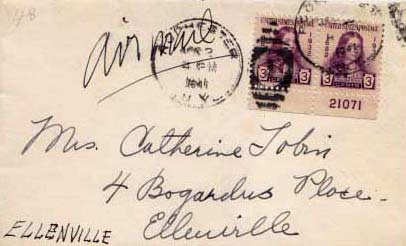 148
air mail
4 PM
1944
N.Y.
UNITED STATES POSTAGE
3 3
21071
Mrs. Catherine Tobin
4 Bogardus Place.
Ellenville
ELLENVILLE